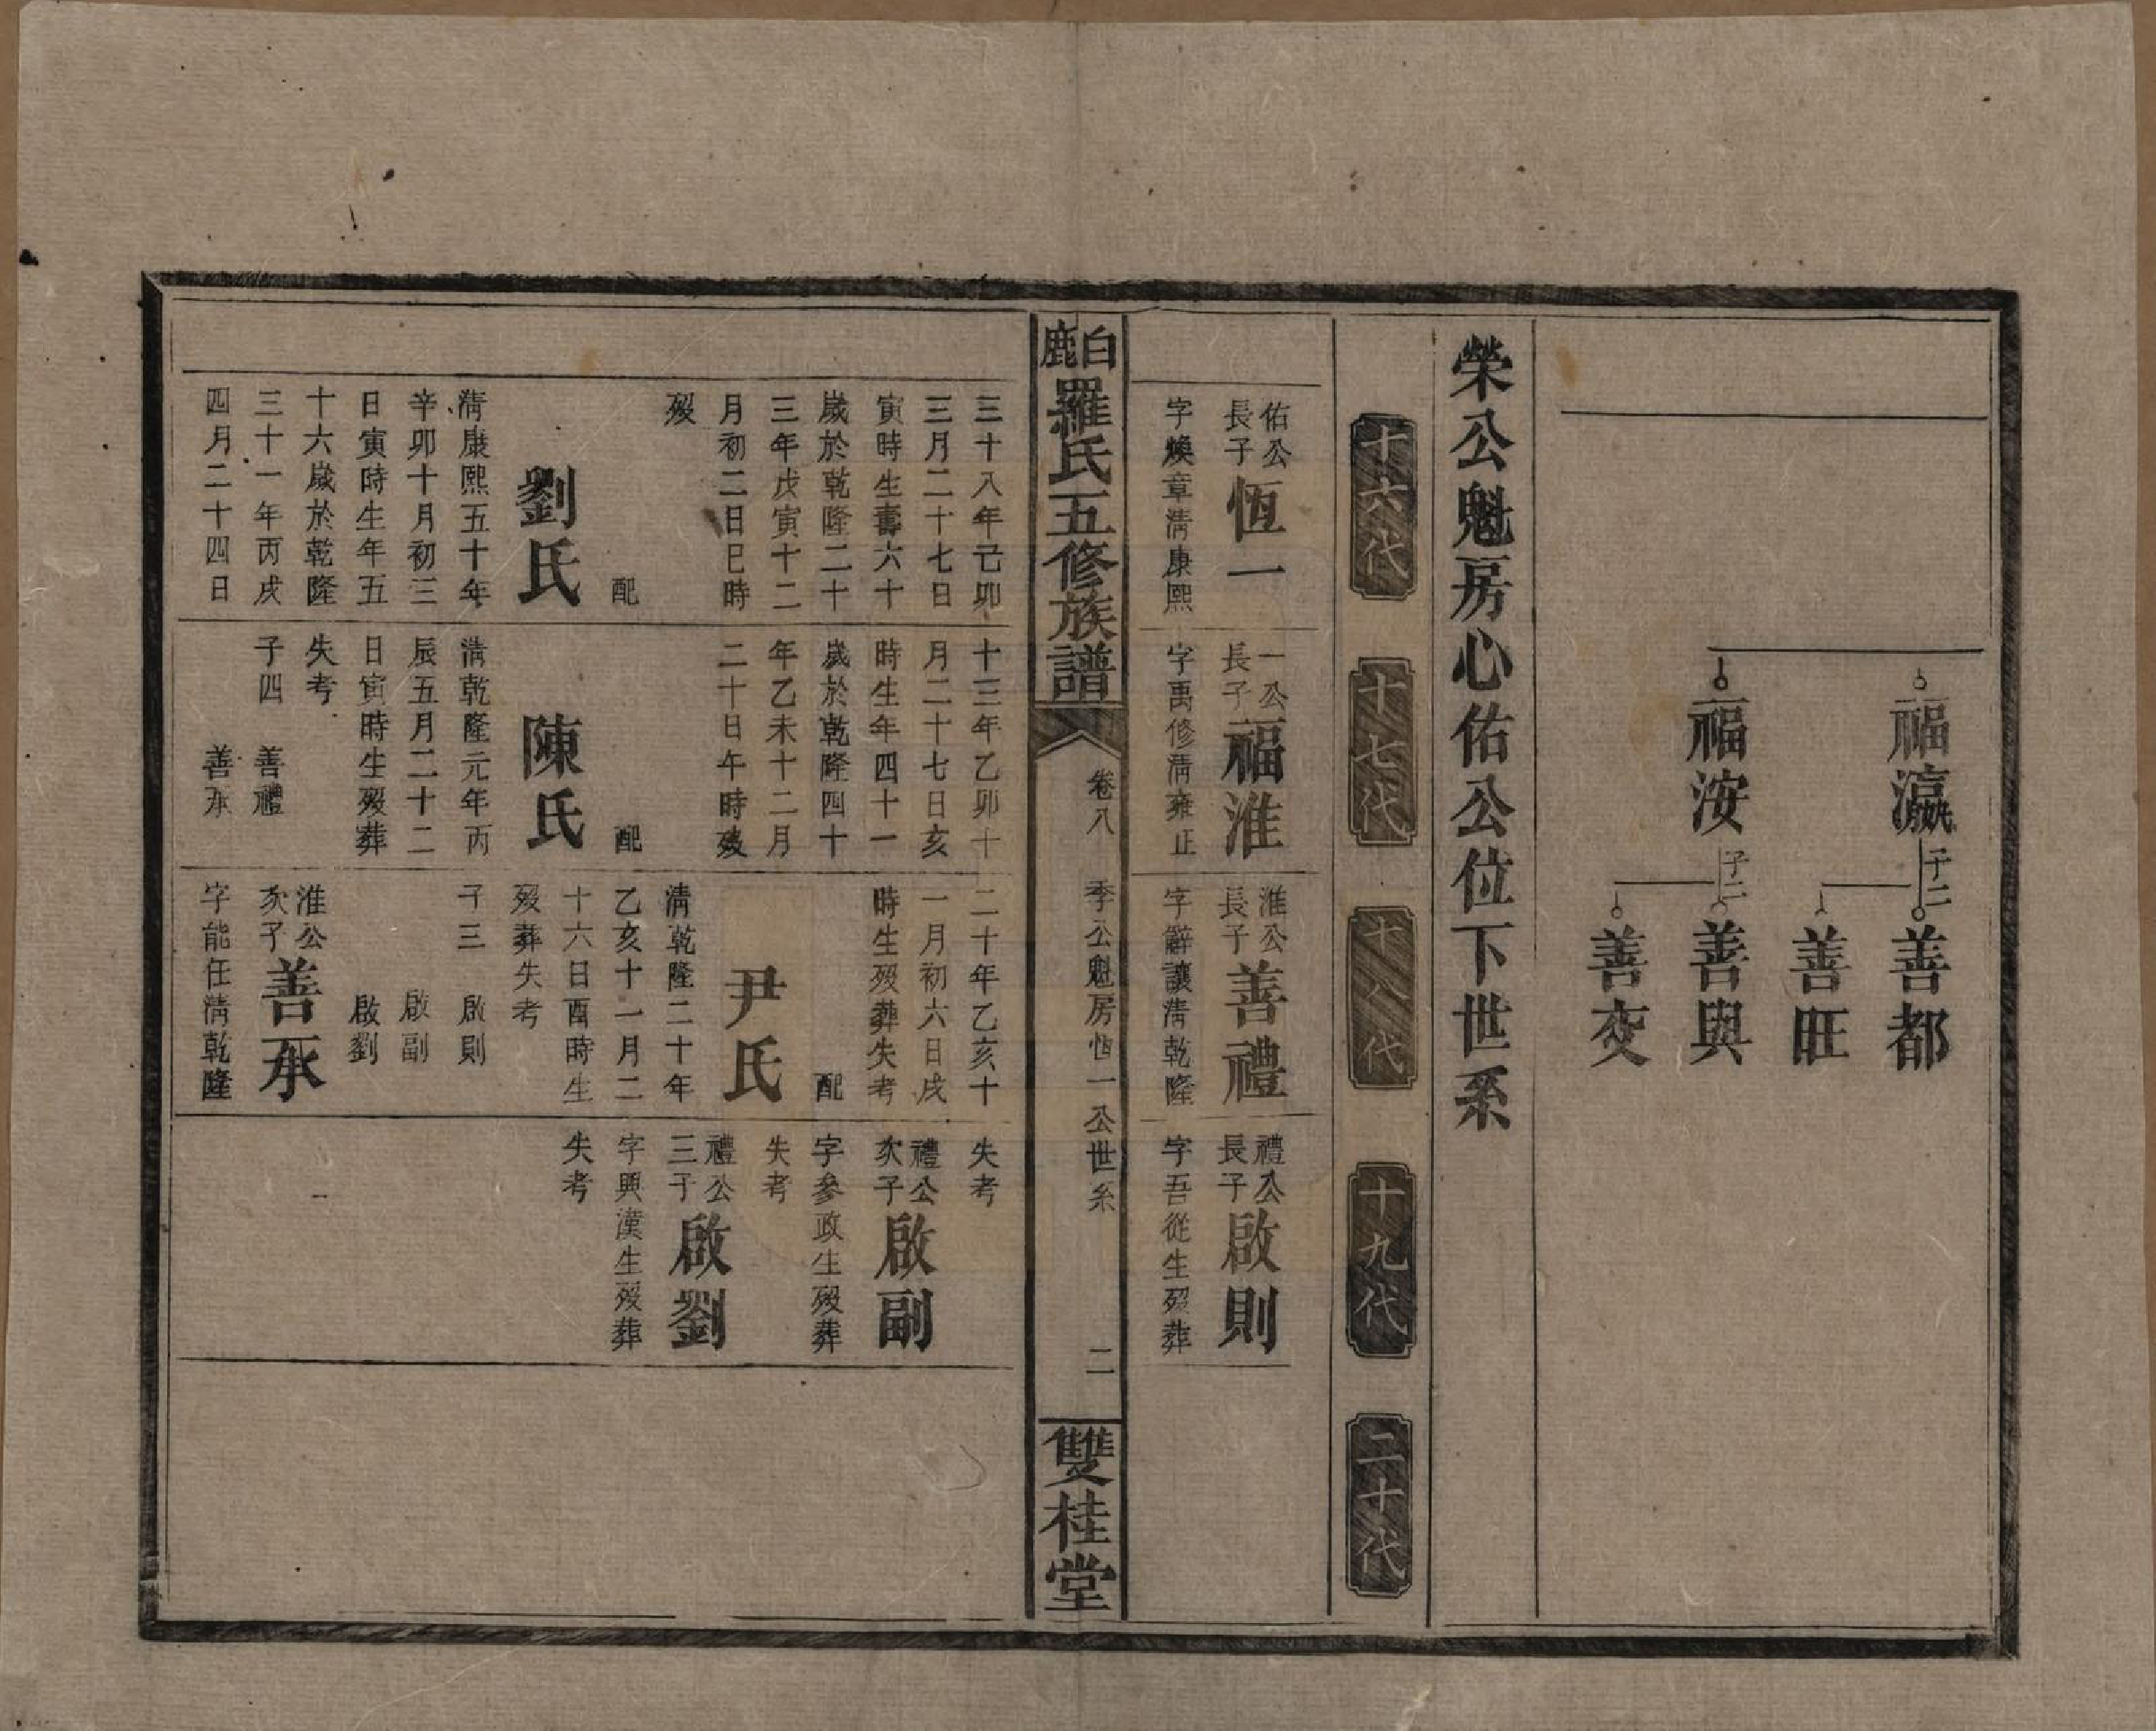 福瀛
子二
善都
善旺
福洝
子二
善與
善交
榮公魁房心佑公位下世系
十六代
十七代
十八代
十九代
二十代
佑公
長子
恆一
字煥章清康熙
一公
長子
福淮
字禹修清雍正
淮公
長子
善禮
字辭讓清乾隆
禮公
長子
啟則
字吾從生歿葬
白鹿
羅氏五修族譜
卷八
季公魁房恆一公世系
二
雙桂堂
三十八年己卯
三月二十七日
寅時生壽六十
歲於乾隆二十
三年戊寅十二
月初二日巳時
歿
配
劉氏
清康熙五十年
辛卯十月初三
日寅時生年五
十六歲於乾隆
三十一年丙戌
四月二十四日
十三年乙卯十
月二十七日亥
時生年四十一
歲於乾隆四十
年乙未十二月
二十日午時歿
配
陳氏
清乾隆元年丙
辰五月二十二
日寅時生歿葬
失考
子四 善禮
善承
二十年乙亥十
一月初六日戌
時生歿葬失考
配
尹氏
清乾隆二十年
乙亥十一月二
十六日酉時生
歿葬失考
子三 啟則
啟副
啟劉
淮公
次子
善承
字能任清乾隆
失考
禮公
次子
啟副
字參政生歿葬
失考
禮公
三子
啟劉
字興漢生歿葬
失考